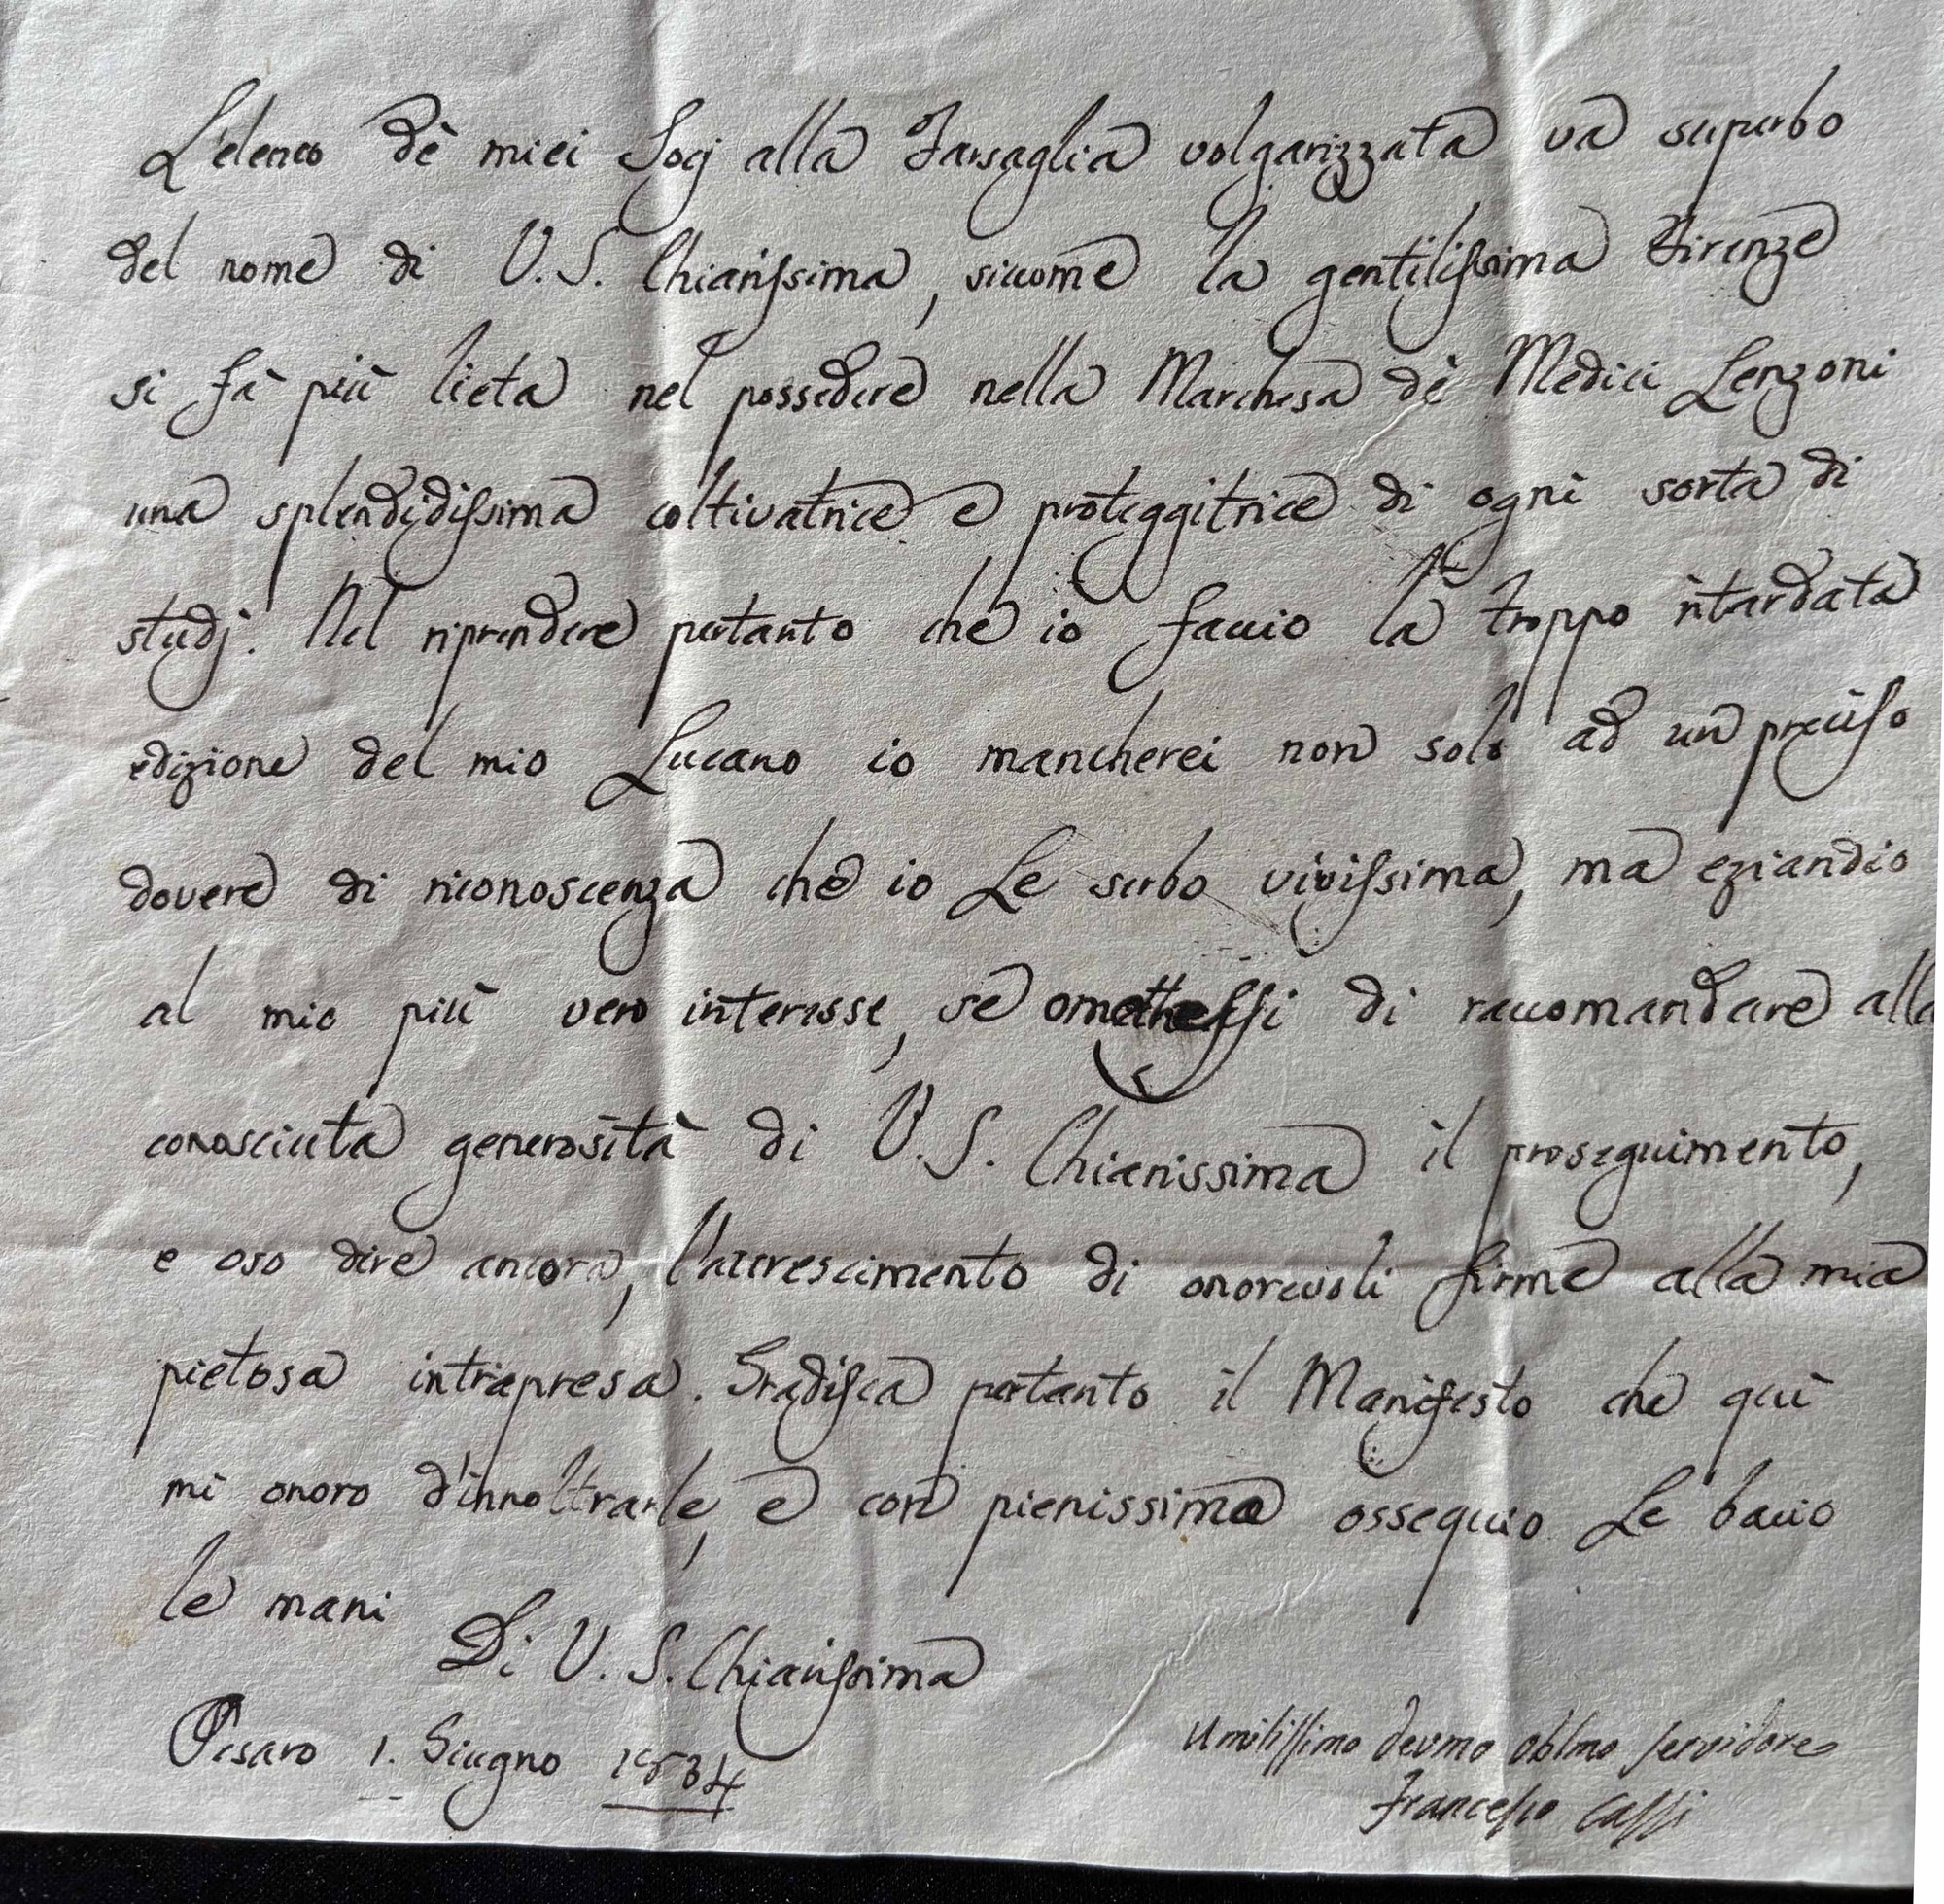 L'elenco dè miei Socj alla Farsaglia volgarizzata va superbo
del nome di V. S. Chiarissima, siccome la gentilissima Firenze
si fà più lieta nel possedere nella Marchesa dè Medici Lenzoni
una splendidissima coltivatrice e proteggitrice di ogni sorta di
studj. Nel riprendere pertanto che io faccio la troppo ritardata
edizione del mio Lucano io mancherei non solo ad un preciso
dovere di riconoscenza che io Le serbo vivissima, ma eziandio
al mio più vero interesse, se omettessi di raccomandare alla
conosciuta generosità di V. S. Chiarissima il proseguimento,
e oso dire ancora, l'accrescimento di onorevoli firme alla mia
pietosa intrapresa. Gradisca pertanto il Manifesto che quì
mi onoro d'innoltrarle, e con pienissimo ossequio Le bacio
le mani
Di V. S. Chiarissima
Pesaro 1. Giugno 1834
Umilissimo devmo oblmo servidore
Francesco Cassi